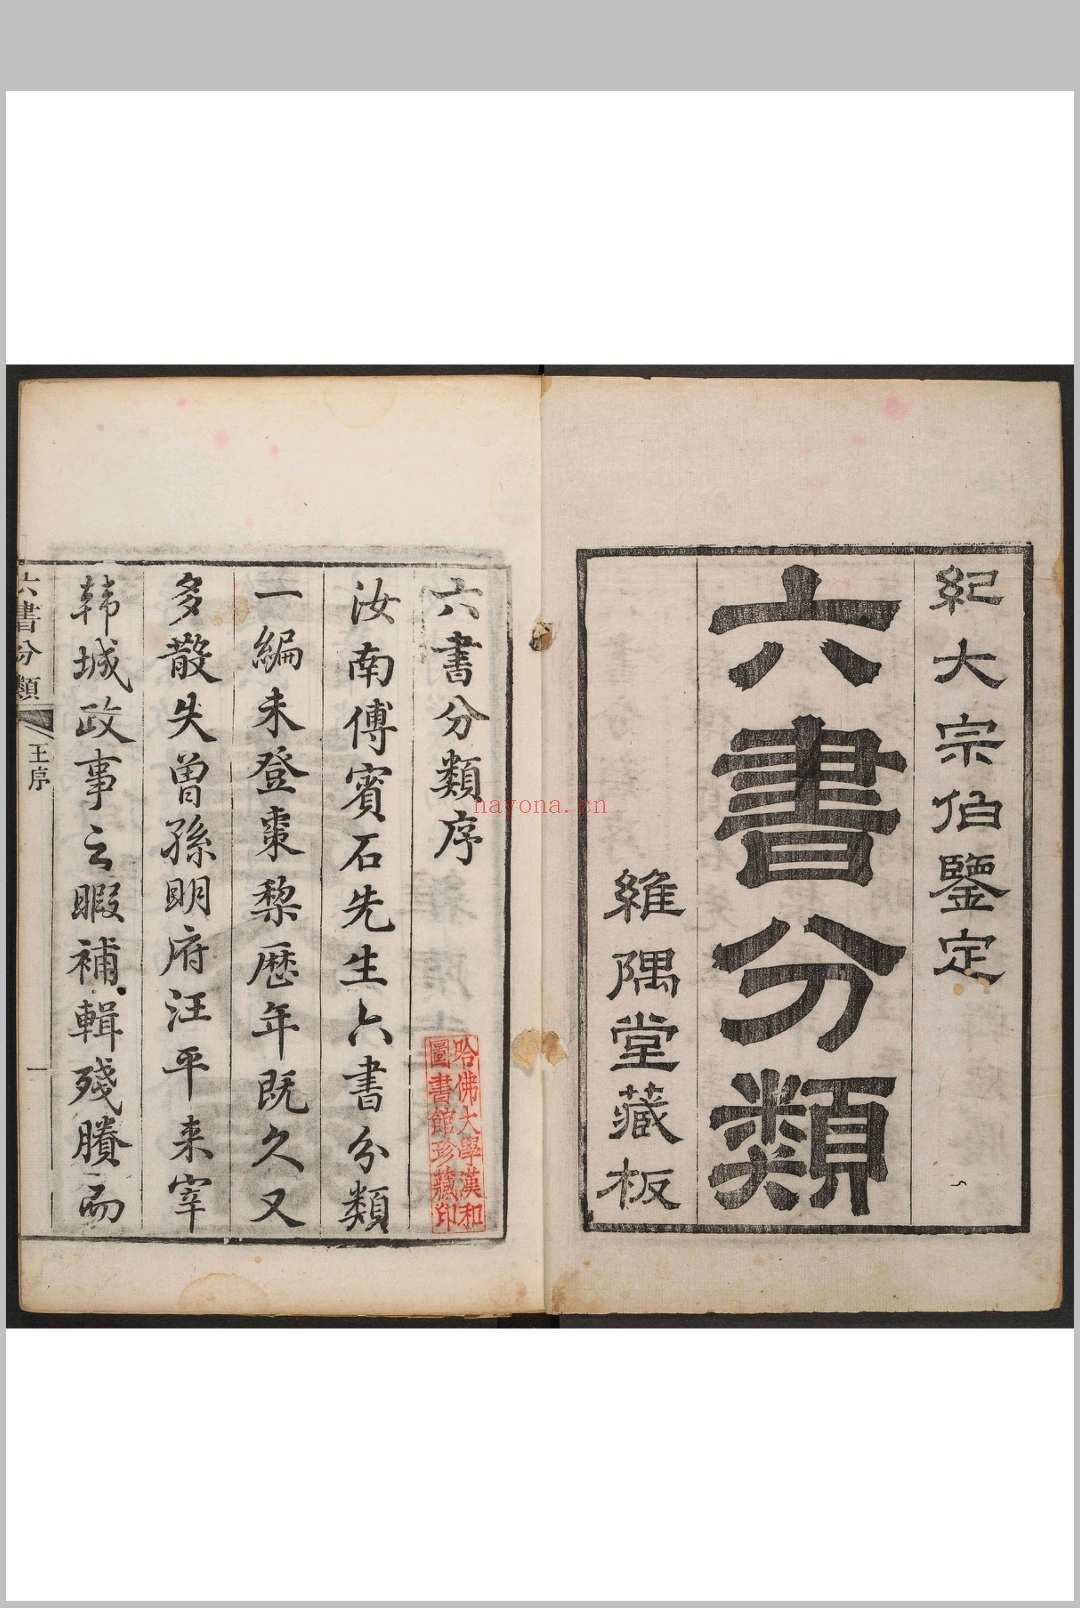 紀大宗伯鑒定
六書分類
維隅堂藏板
六書分類序
汝南傅賓石先生六書分類
一編未登棗梨歷年既久又
多散失曾孫明府汪平来宰
韩城政事之暇補輯殘賸而
六書分類
王序
一
哈佛大學漢和
圖書館珍藏印
nayona.cn